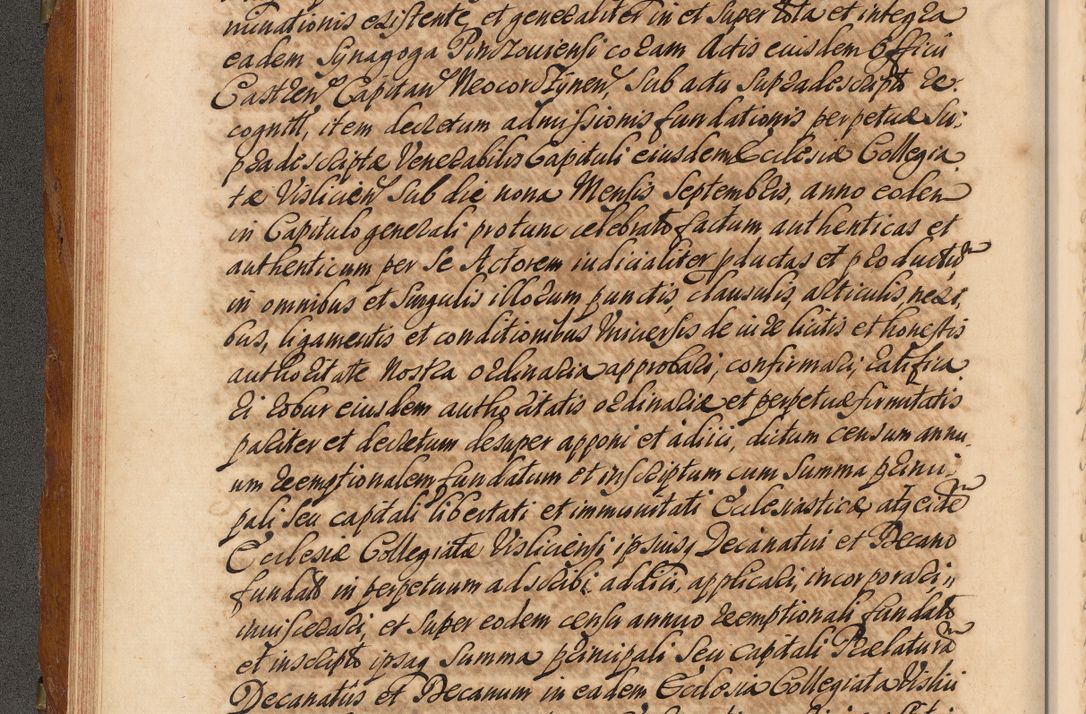 minationis existente, et generaliter in et super tota et integra
eadem Synagoga Pinczouiensi coram Actis eiusdem Officii
Castren Capitan Neocordzynen, sub actu supradescript re,
cognit, item decretum admissionis fundationis perpetuæ Su,
pradescriptæ Venerabilis Capituli eiusdem Ecclesiæ Collegia
tæ Vislicien sub die nona Mensis Septembris, anno eodem
in Capitulo generali pro tunc celebrato factum authenticas et
authenticum per se Actorem iudicialiter pductas et productum
in omnibus et singulis illorum punctis, clausulis, articulis, nexi,
bus, ligamentis et conditionibus Universis de iure licitis et honestis
authoritate Nostra ordinaria approbari, confirmari, ratifica
ri robur eiusdem authoritatis ordinariæ et perpetuæ firmitatis
pariter et decretum desuper apponi et adiici, dictum censum annu
um reemptionalem fundatum et inscriptum cum summa princi,
pali seu capitali libertati et immunitati Ecclesiasticæ, atq eidem
Ecclesiæ Collegiatæ Visliciensi ipsius, Decanatui et Decano
fundat in perpetuum adscribi, addici, applicari, incorporari,,
inviscerari, et super eodem censu annuo reemptionali fundato
et inscripto ipsaq summa principali seu capitali Prælaturam
Decanatus et Decanum in eadem Ecclesia Collegiata Vislici